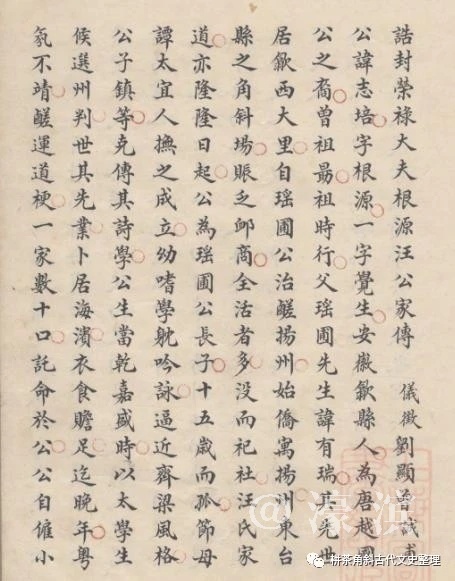 誥封榮祿大夫根源汪公家傳 儀徵劉顯曾誠甫
公諱志培字根源一字覺生安徽歙縣人為唐越國
公之裔曾祖勗祖時行父瑤圃先生諱有瑞其先世
居歙西大里自瑤圃公治鹺揚州始僑寓揚州東台
縣之角斜場賑乏卹商全活者多没而祀社汪氏家
道亦隆隆日起公為瑤圃公長子十五歲而孤節母
譚太宜人撫之成立幼嗜學躭吟詠逼近齊梁風格
公子鎮等克傳其詩學公生當乾嘉盛時以太學生
候選州判世其先業卜居海濱衣食贍足迄晚年粵
氛不靖鹺運道梗一家數十口託命於公公自僱小
@濠濱
栟茶角斜古代文史整理